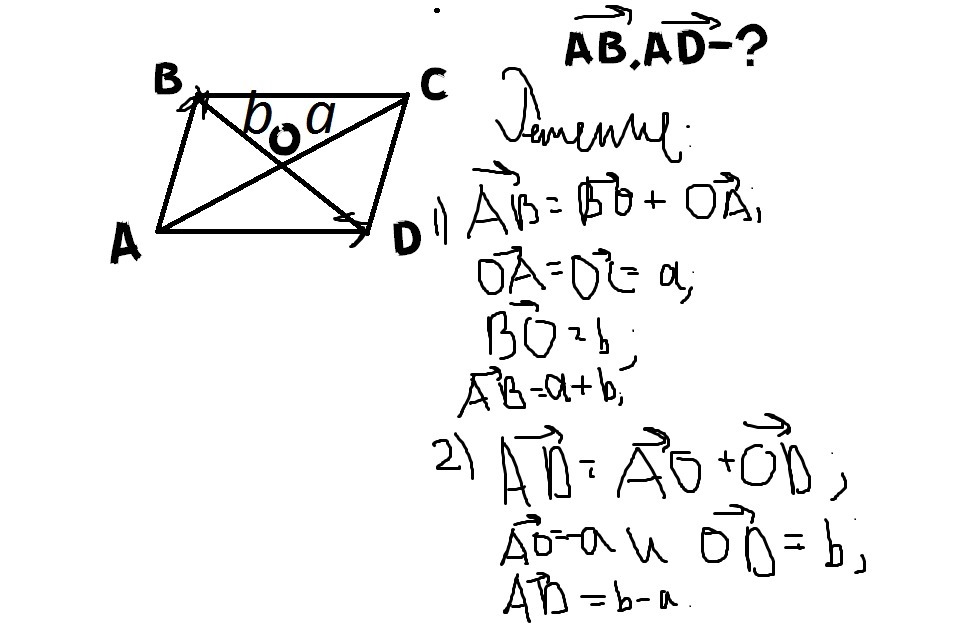 AB, AD-?
B
b
a
C
O
A
D
Решение:
1) AB = BO + OA,
OA = OC = a;
BO = b;
AB = a + b;
2) AD = AO + OD;
AO = -a и OD = b;
AD = b - a.